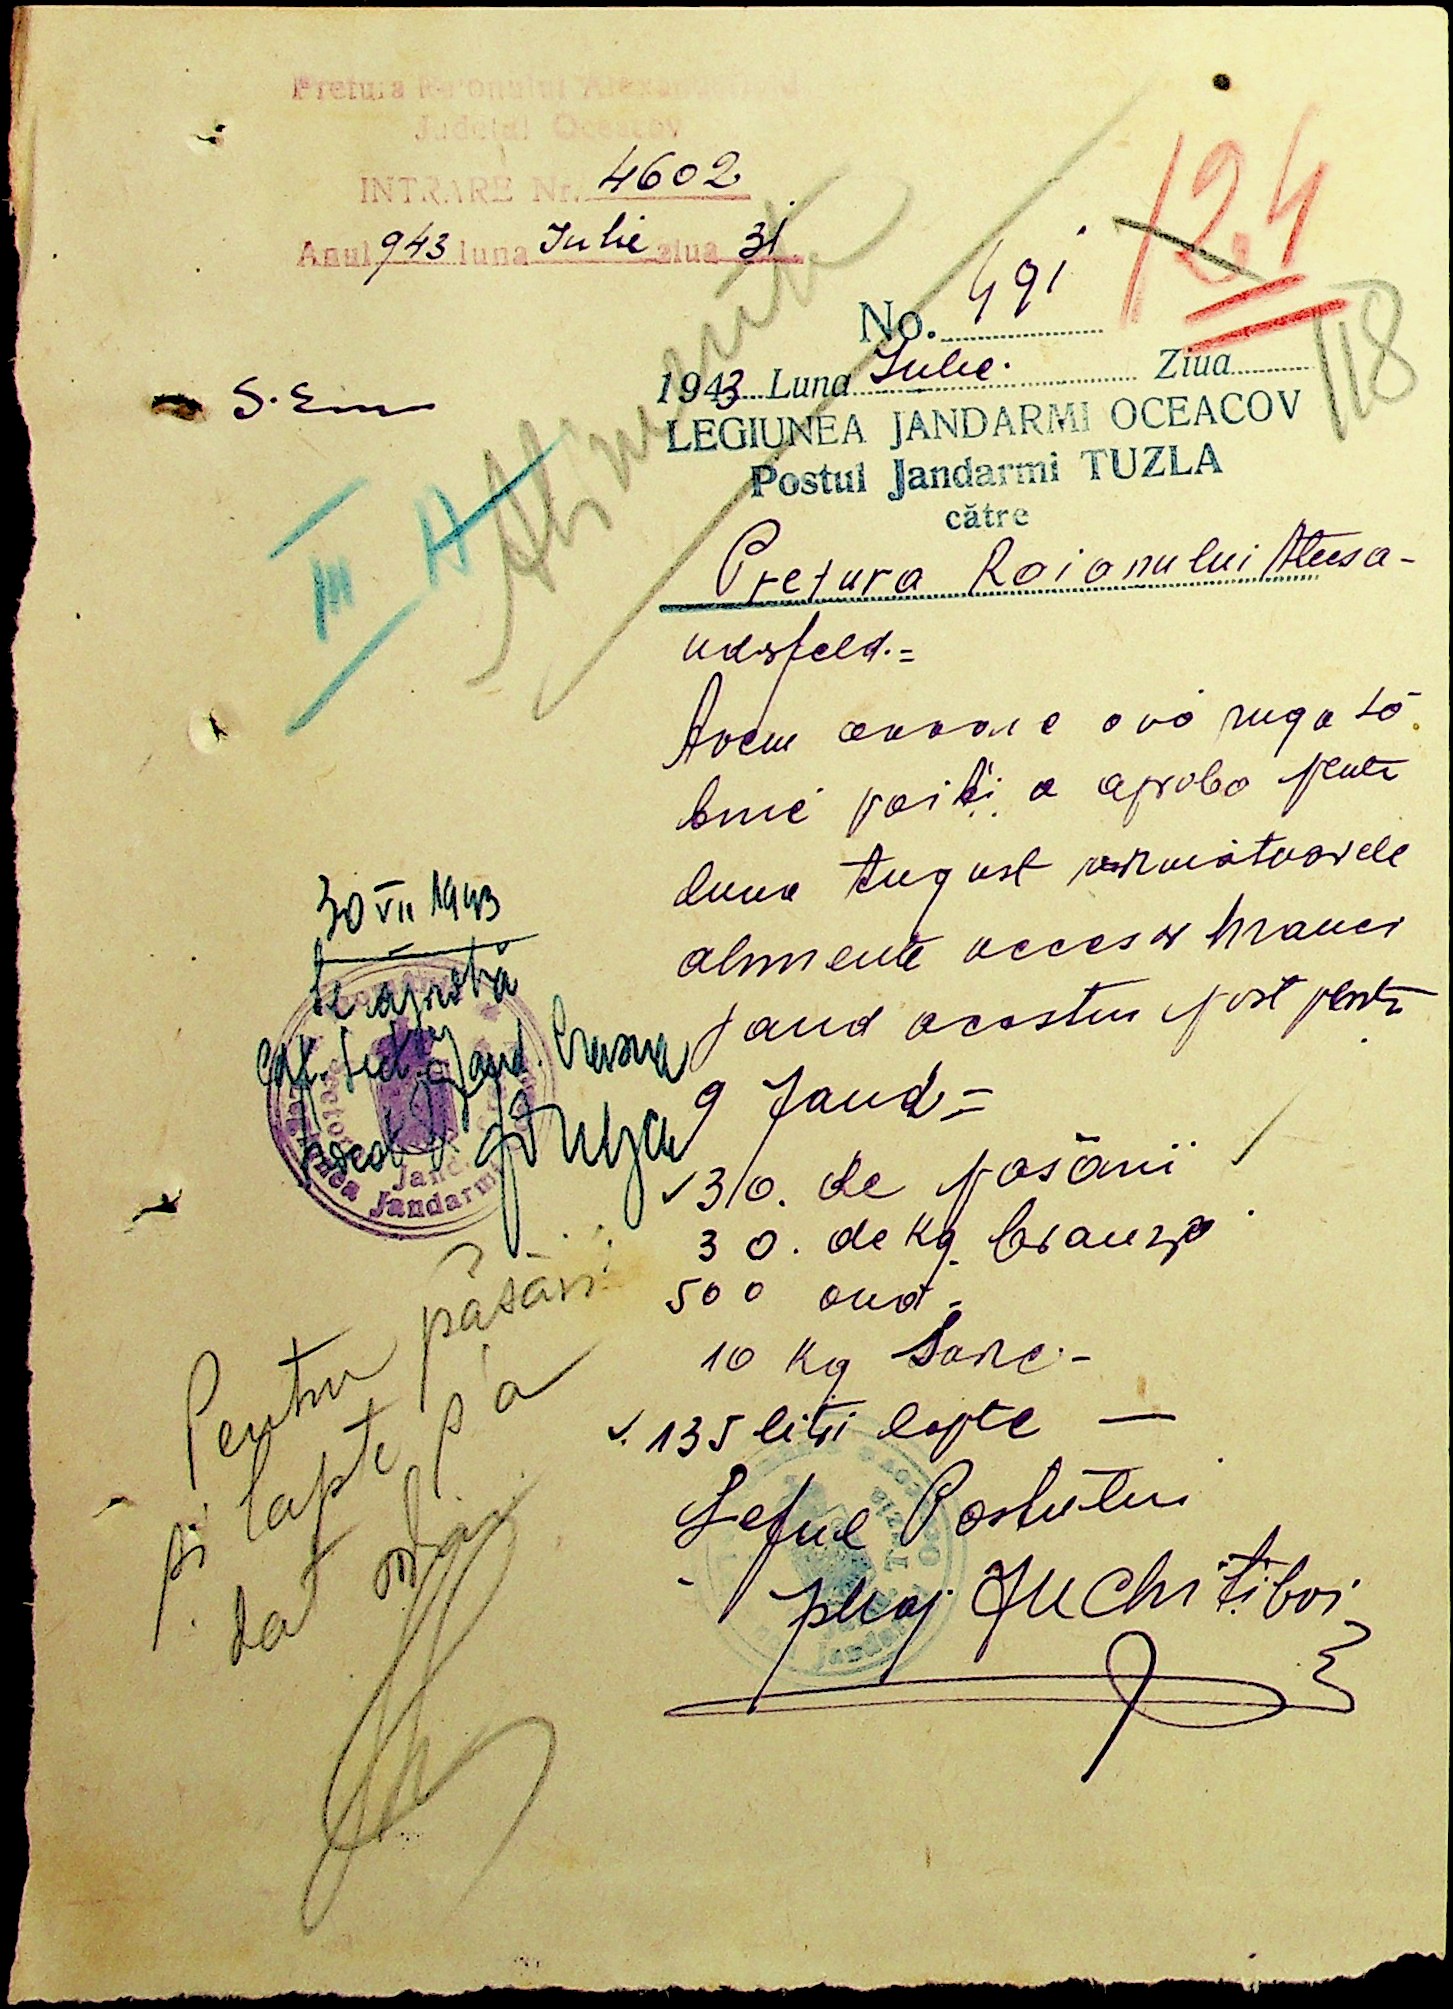 Pretura Raionului Alexanderfeld
Județul Oceacov
INTRARE Nr. 4602
Anul 943 luna Iulie ziua 31
124
118
No. 491
1943 Luna Iulie. Ziua
LEGIUNEA JANDARMI OCEACOV
Postul Jandarmi TUZLA
către
S.
III A
Alimente
Pretura Raionului Alecsa-
ndrfeld.=
Avem onoare a vă ruga să
bine voiți a aproba pentru
luna August următoarele
alimente necesar hranei
jand acestui post pentru
9 Jand=
30. de păsării
30. de Kg branză
500 ouă=
10 Kg Sare.-
135 litri lapte —
Șeful Postului
pluaj
30 VII 1943
Se aprobă
Jand.
Jandarmi
Pentru păsări
și lapte s'a
dat ordin